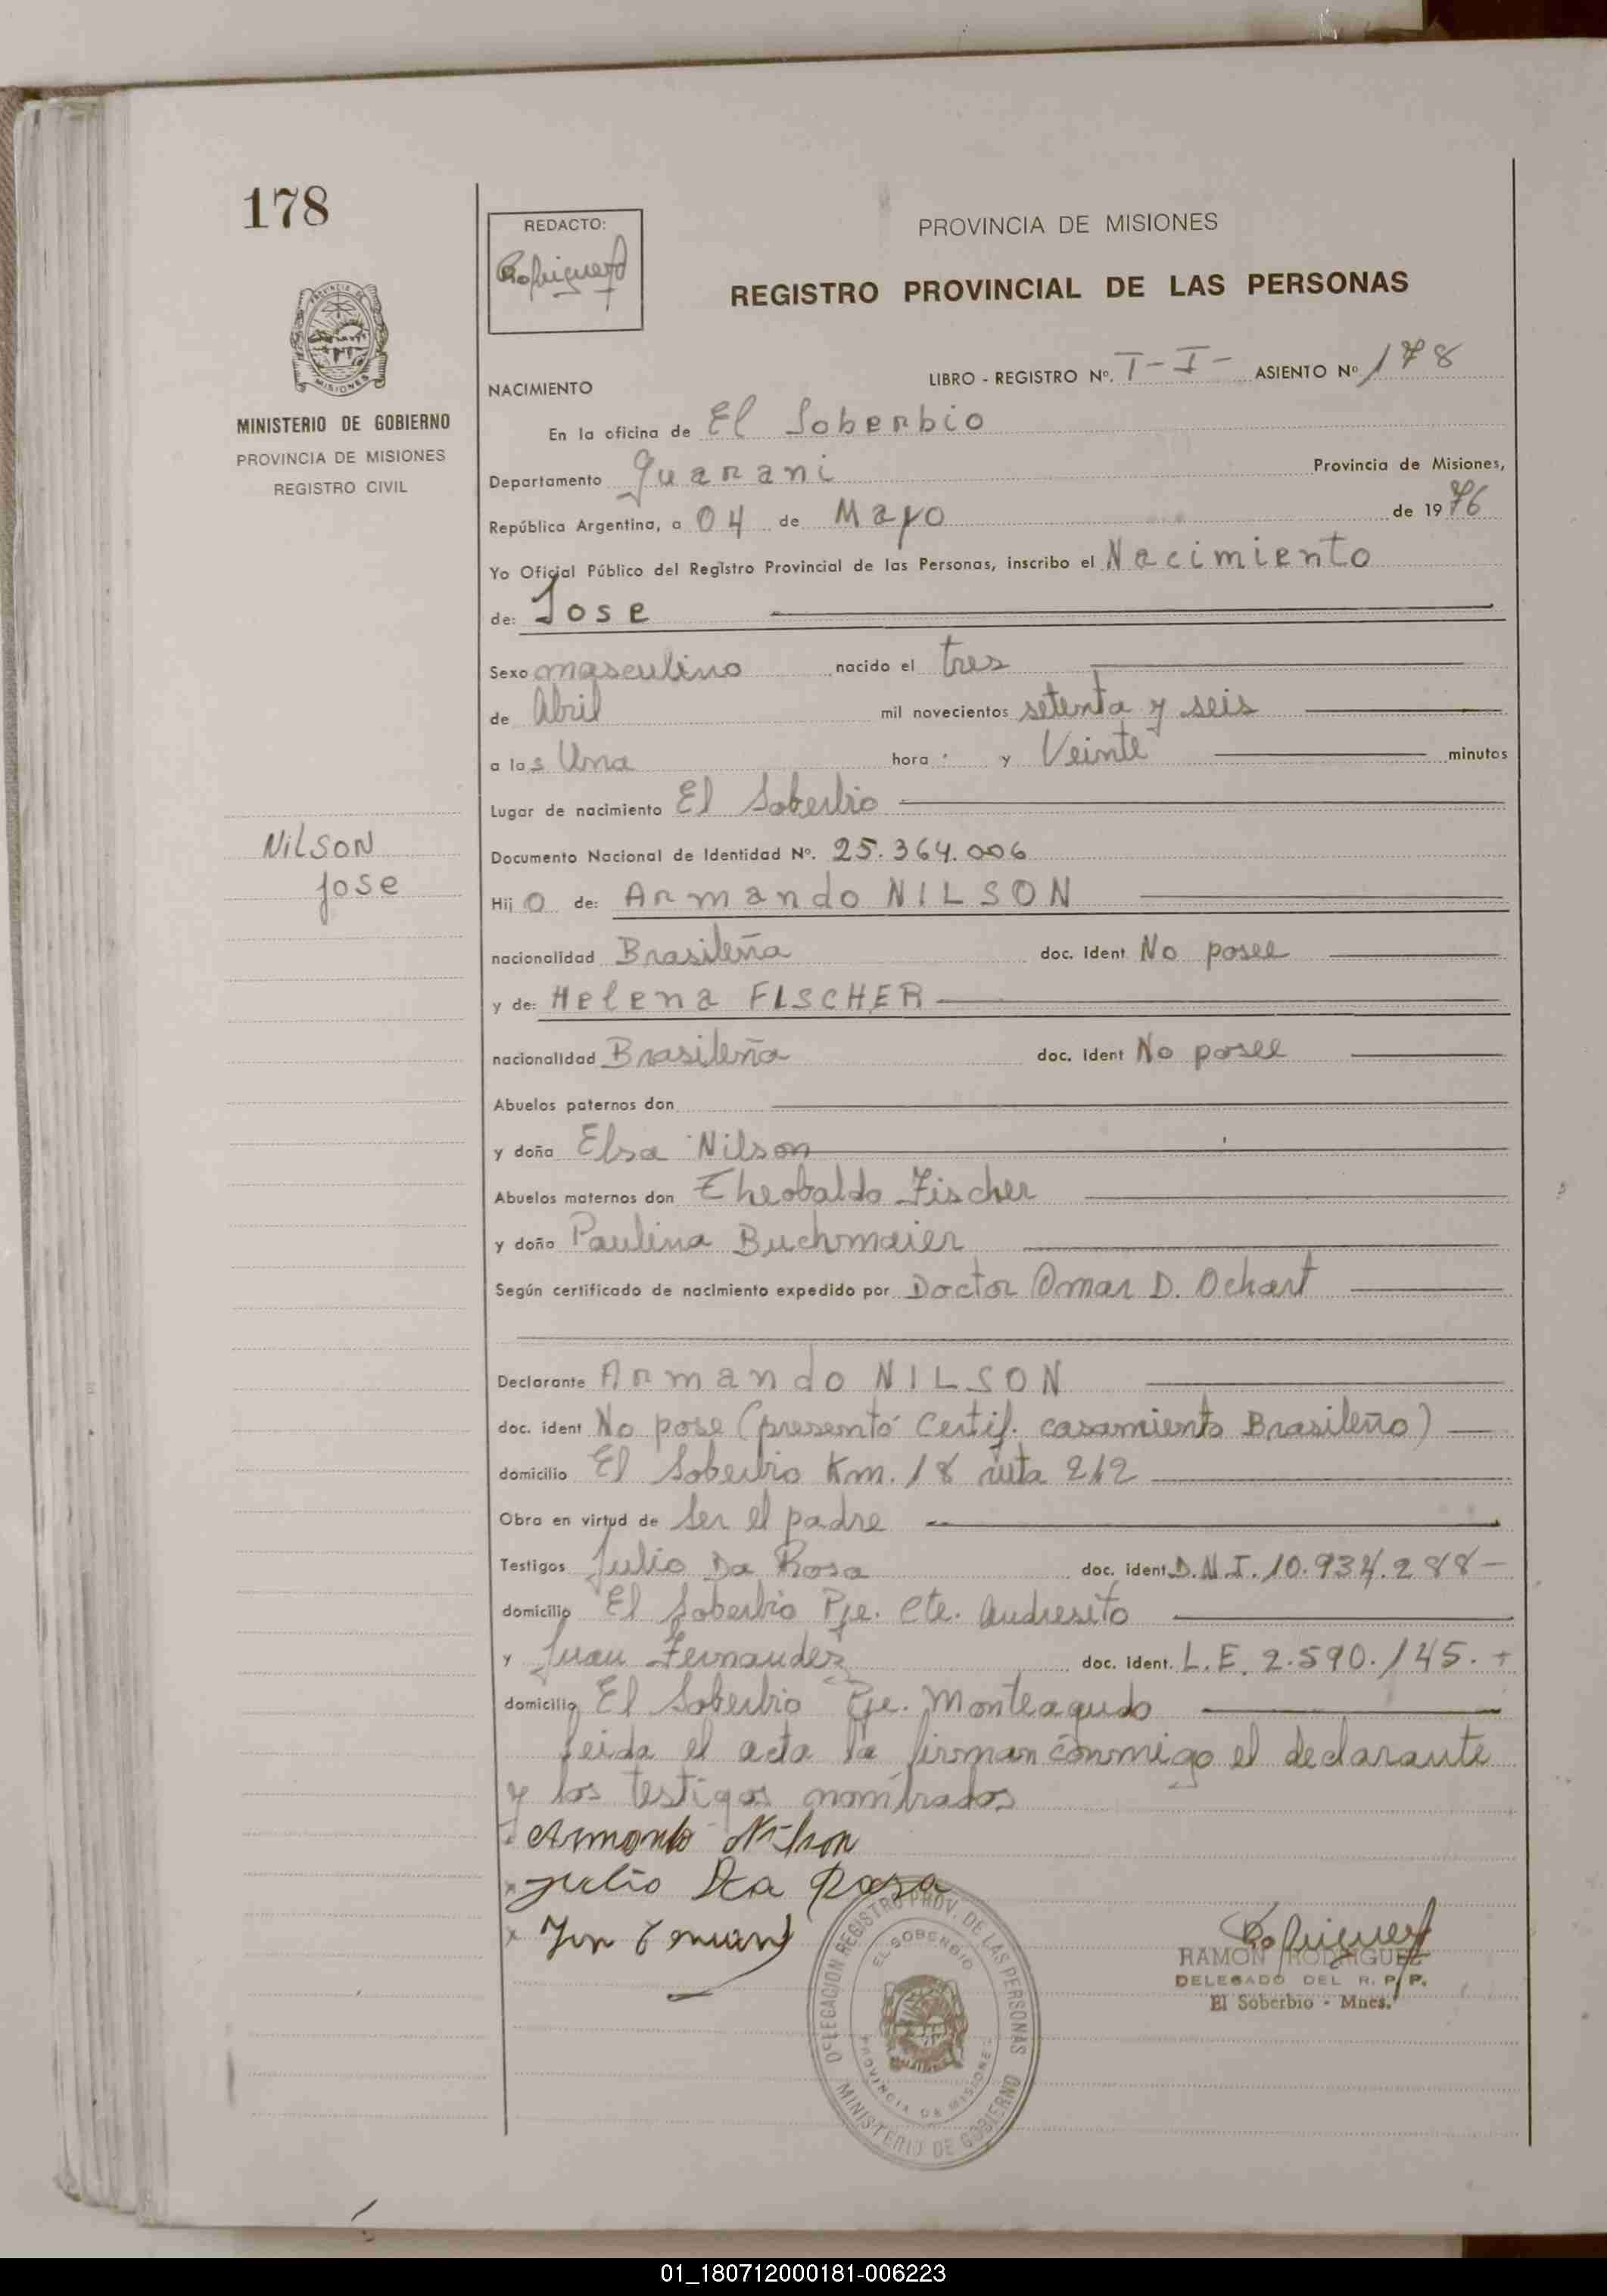 178
REDACTO:
PROVINCIA DE MISIONES
REGISTRO PROVINCIAL DE LAS PERSONAS
MINISTERIO DE GOBIERNO
PROVINCIA DE MISIONES
REGISTRO CIVIL
NACIMIENTO
LIBRO - REGISTRO Nº. T - I - ASIENTO Nº 178
En la oficina de El Soberbio
Departamento Guarani Provincia de Misiones,
República Argentina, a 04 de Mayo de 1976
Yo Oficial Público del Registro Provincial de las Personas, inscribo el Nacimiento
de: Jose
Sexo masculino nacido el tres
de Abril mil novecientos setenta y seis
a las Una hora y Veinte minutos
Lugar de nacimiento El Soberbio
NiLSON
jose
Documento Nacional de Identidad Nº. 25.364.006
Hij O de: Armando NILSON
nacionalidad Brasileña doc. ident No posee
y de: Helena FISCHER
nacionalidad Brasileña doc. ident No posee
Abuelos paternos don
y doña Elsa Nilson
Abuelos maternos don Theobaldo Fischer
y doña Paulina Buchmaier
Según certificado de nacimiento expedido por Doctor Omar D. Ochart
Declarante Armando NILSON
doc. ident No pose (presentó Certif. casamiento Brasileño)
domicilio El Soberbio Km. 18 ruta 212
Obra en virtud de Ser el padre
Testigos Julio Da Rosa doc. ident D.N.I. 10.934.288 -
domicilio El Soberbio Pje. Cte. Andresito
y Juan Fernandez doc. ident. L.E. 2.590.145.
domicilio El Soberbio Pje. Monteagudo
Leida el acta la firman conmigo el declarante
y los testigos nombrados
Armando Nilson
Julio Da Rosa
DELEGACION REGISTRO PROV. DE LAS PERSONAS
EL SOBERBIO
PROVINCIA DE MISIONES
MINISTERIO DE GOBIERNO
RAMON RODRIGUEZ
DELEGADO DEL R. P. P.
El Soberbio - Mnes.
01_180712000181-006223